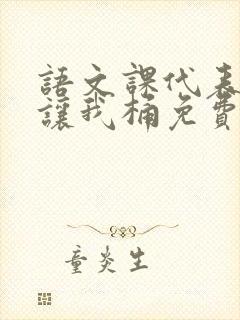 語文課代表
讓我桶免費
童炎生